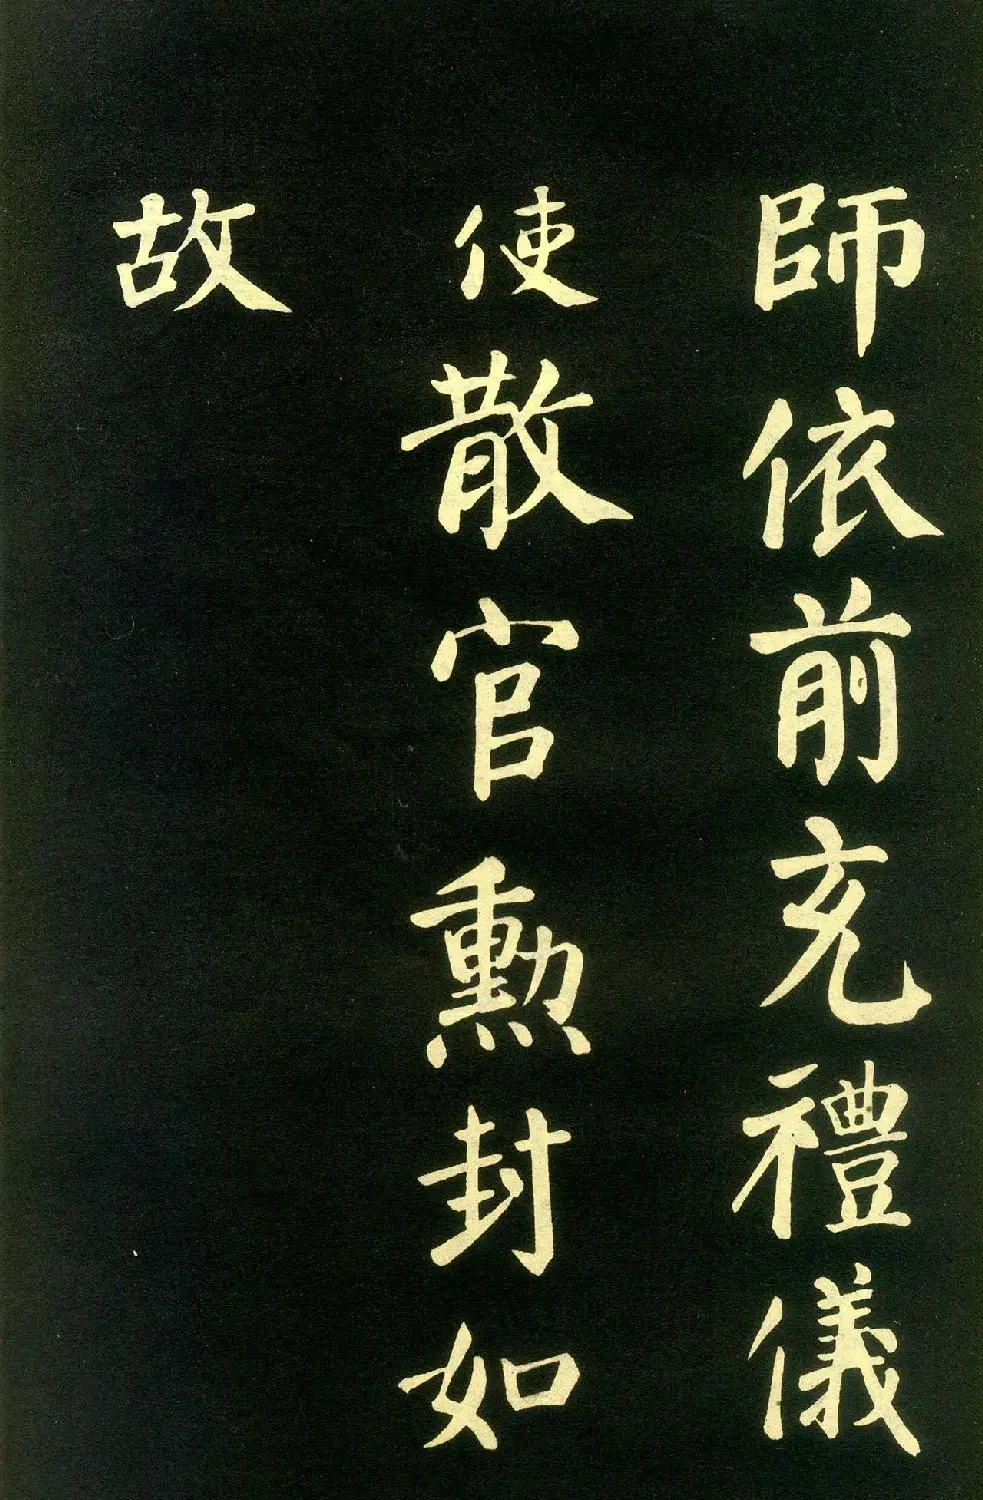 師依前充禮儀
使散官勲封如
故